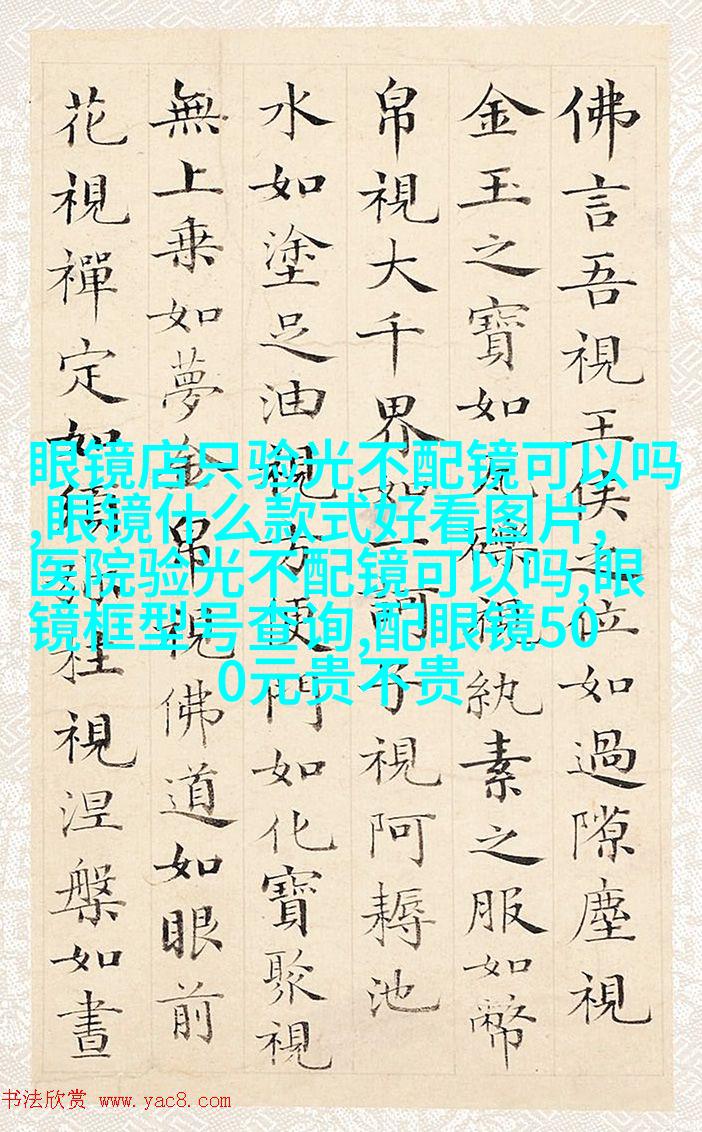 佛言吾視王侯之位如過隙塵視
金玉之寶如瓦礫視紈素之服如幣
帛視大千界如一訶子視阿耨池
水如塗足油視方便門如化寶聚視
無上乗如夢金帛視佛道如眼前
花視禪定如須彌柱視涅槃如晝
眼镜店只验光不配镜可以吗
,眼镜什么款式好看图片,
医院验光不配镜可以吗,眼
镜框型号查询,配眼镜50
0元贵不贵
书法欣赏 www.yac8.com